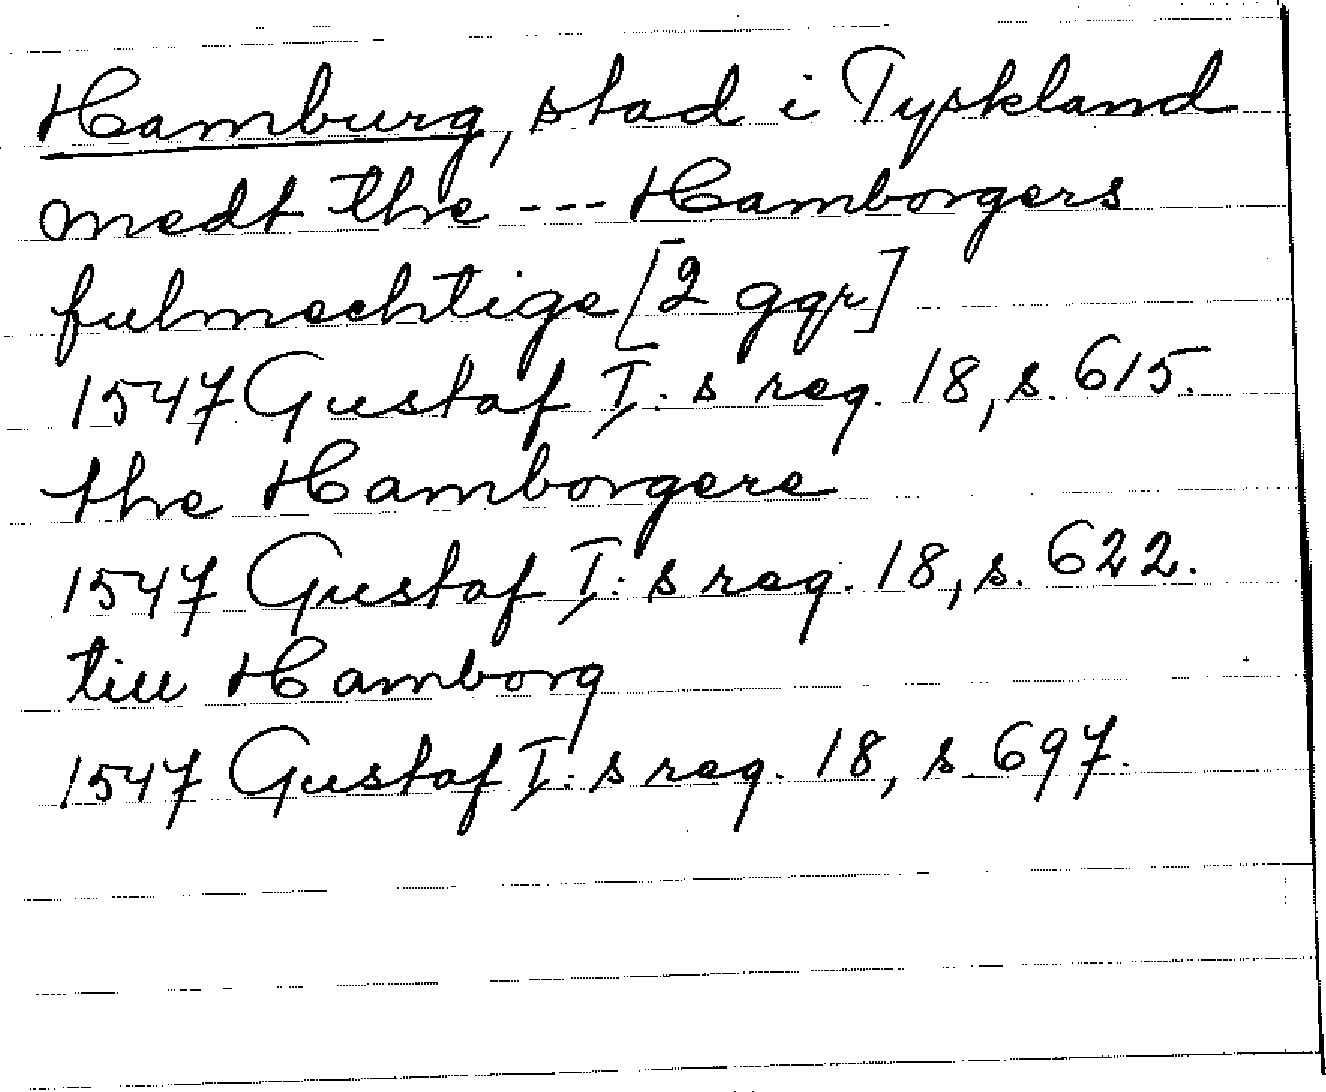 Hamburg, stad i Tyskland
medt the --- Hamborgers
fulmechtige [2 ggr]
1547 Gustaf I:s reg. 18, s. 615.
the Hamborgere
1547 Gustaf I:s reg. 18, s. 622.
till Hamborg
1547 Gustaf I:s reg. 18, s 697.